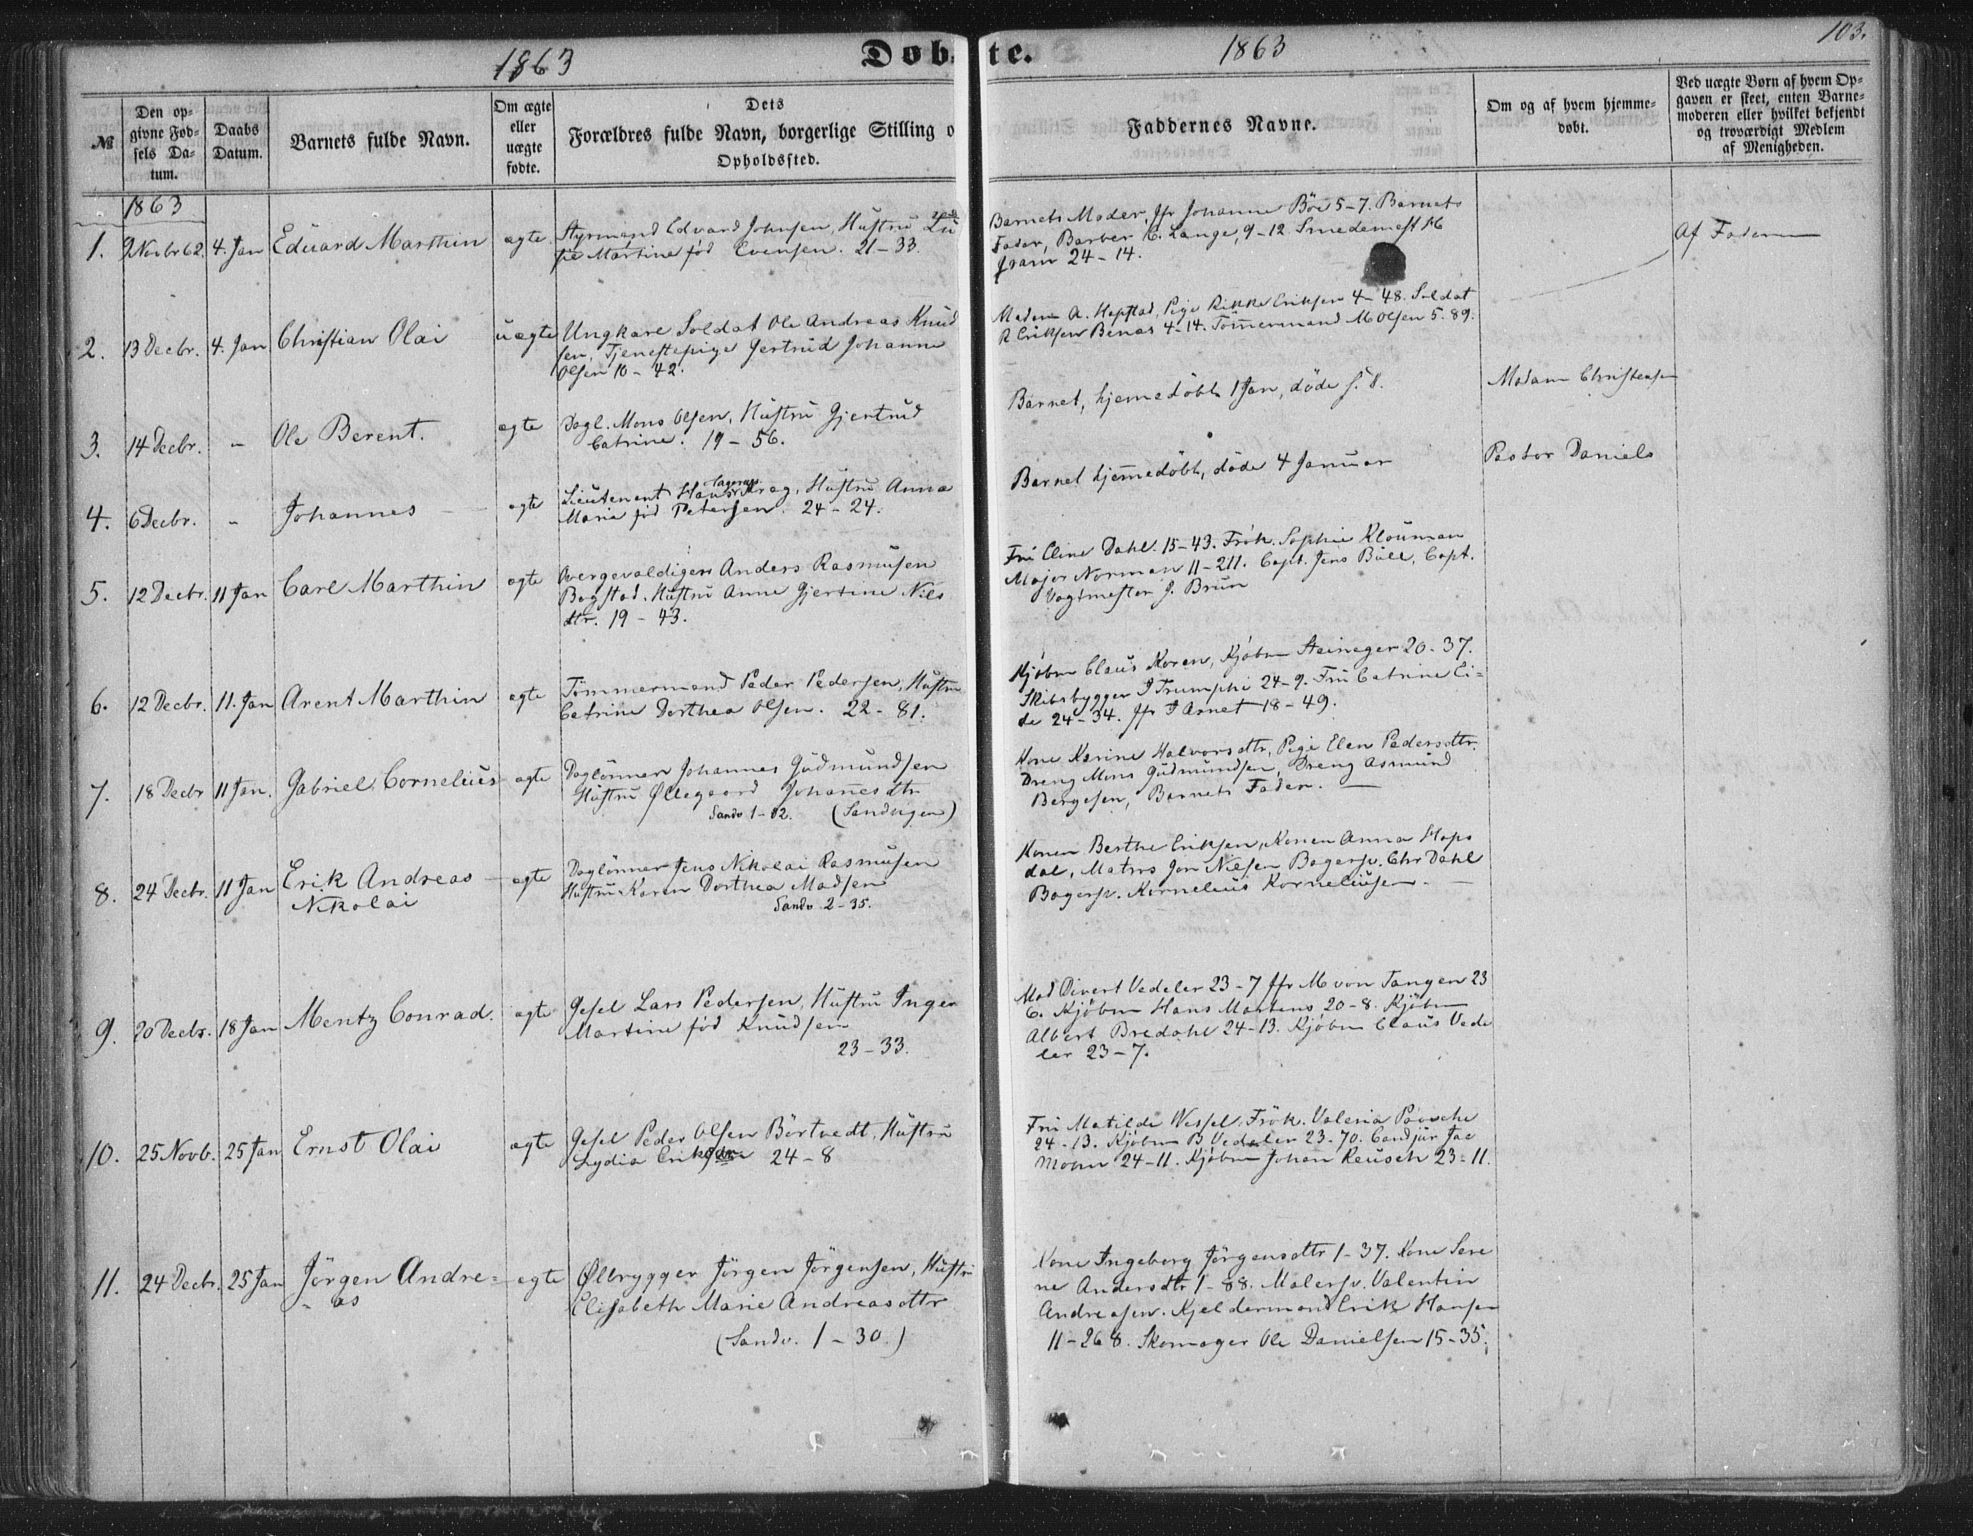 1863
Døbte.
1863
103.
№
Den opgivne Fødsels Datum.
Daabs Datum.
Barnets fulde Navn.
Om ægte eller uægte fødte.
Dets Forældres fulde Navn, borgerlige Stilling o
Opholdssted.
Faddernes Navne.
Om og af hvem hjemmedøbt.
Ved uægte Børn af hvem Opgaven er skeet, enten Barnemoderen eller hvilket bekjendt og troværdigt Medlem af Menigheden.
1863
1. 9 Novbr 62. 4. Jan Eduard Marthin ægte
Styrmand Edvard Johnsen, Hustru
Martine fød Evensen. 21-33.
Barnets Moder, Jfr Johanne Böe 5-7. Barnets
Fader, Barber C. Lange, 9-12 Smedemest
24-14.
2. 13 Decbr. 4. Jan Christian Olai uægte
Ungkarl Soldat Ole Andreas Knud
sen, Tjenestepige Gertrud Johanne
Olsen 10-42.
Madam A. Hopstad, Pige Rikke Eriksen 4-48. Soldat
R Eriksen Benas 4-14. Tömmermand M Olsen 5.89.
Af Faderen
3. 14 Decbr. " Ole Berent. ægte
Dagl. Mons Olsen, Hustru Gjertrud
Catrine. 19-56.
Barnet, hjemedöbt 1 Jan, döde s. d.
Madam Christensen
4. 6 Decbr. " Johannes ægte
Lieutenent Hans Krag, Hustru Anna
Maria fød Petersen. 24-24.
Barnet hjemedöbt, döde 4 Januar
Pastor Daniels
5. 12 Decbr. 11 Jan Carl Marthin ægte
Overgevaldiger Anders Rasmusen
Bogstad. Hustru Anne Gjertine Nils
dtr. 19-43.
Fru Eline Dahl. 15-43. Frök. Sophie Klouman
Major Norman 11-211. Capt. Jens Bull, Capt.
Vagtmester J. Brun
6. 12 Decbr. 11. Jan Arent Marthin ægte
Tömmermand Peder Pedersen, Hustru
Catrine Dorthea Olsen. 22-81.
Kjøbm Claus Koren, Kjøbm Steineger 20-37.
Skibsbygger J Trumphi 24-9. Fru Catrine Ei-
de 24-34. Jfr J Arnet 18-49.
7. 18 Decbr 11 Jan. Gabriel Cornelius ægte
Daglönner Johannes Gudmundsen
Hustru Øllegaard Johanesdtr
Sandv 1-12. (Sandvigen)
Kone Karine Halvorsdtr, Pige Elen Pedersdtr.
Dreng Mons Gudmundsen, Dreng Asmund
Bergesen, Barnets Fader.
8. 24 Decbr. 11 Jan Erik Andreas
Nikolai ægte
Daglönner Jens Nikolai Rasmusen
Hustru Karen Dorthea Madsen
Sandv 2-35.
Konen Berthe Eriksen, Konen Anna Hops
dal, Matros Jon Nilsen Bagersv. Chr Dahl
Bagersv. Kornelius Korneliusen.
9. 20 Decbr. 18 Jan Mentz Conrad. ægte
Gesel Lars Pedersen, Hustru Inger
Martine fød Knudsen
23-33.
Mad Divert Vedeler 23-7 Jfr M von Tangen 23
6. Kjöbm Hans Martens 20-8. Kjöbm
Albert Bredahl 24-13. Kjøbm Claus Vede
ler 23-7.
10. 25 Novb. 25 Jan Ernst Olai ægte
Gesel Peder Olsen Börtvedt, Hustru
Lydia Eriksdr 24-8
Fru Matilde Wessel, Frök. Valeria Paasche
24-13. Kjöbm B Vedeler 23-70. Candjur Jac
Mohn 24-11. Kjøbm Johan Reusch 23-11.
11. 24 Decbr. 25 Jan Jörgen Andre=
as ægte
Ølbrygger Jörgen Jörgensen, Hustru
Elisabeth Marie Andreasdtr
(Sandv. 1-30.)
Kone Ingeborg Jörgensdtr 1-37. Kone Sere
ne Andersdtr 1-88. Malersv. Valentin
Andreasen. Kjeldermand Erik Hansen
11-268. Skomager Ole Danielsen 15-35.